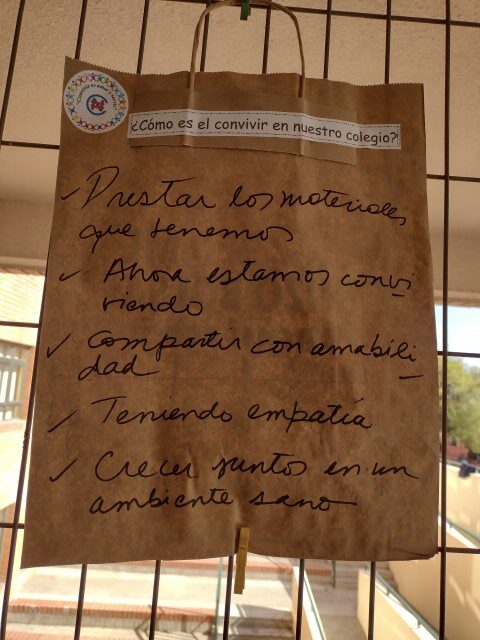 ¿Cómo es el convivir en nuestro colegio?
✓ Prestar los materiales
que tenemos
✓ Ahora estamos convi
viendo
✓ Compartir con amabili
dad
✓ Teniendo empatía
✓ Crecer juntos en un
ambiente sano